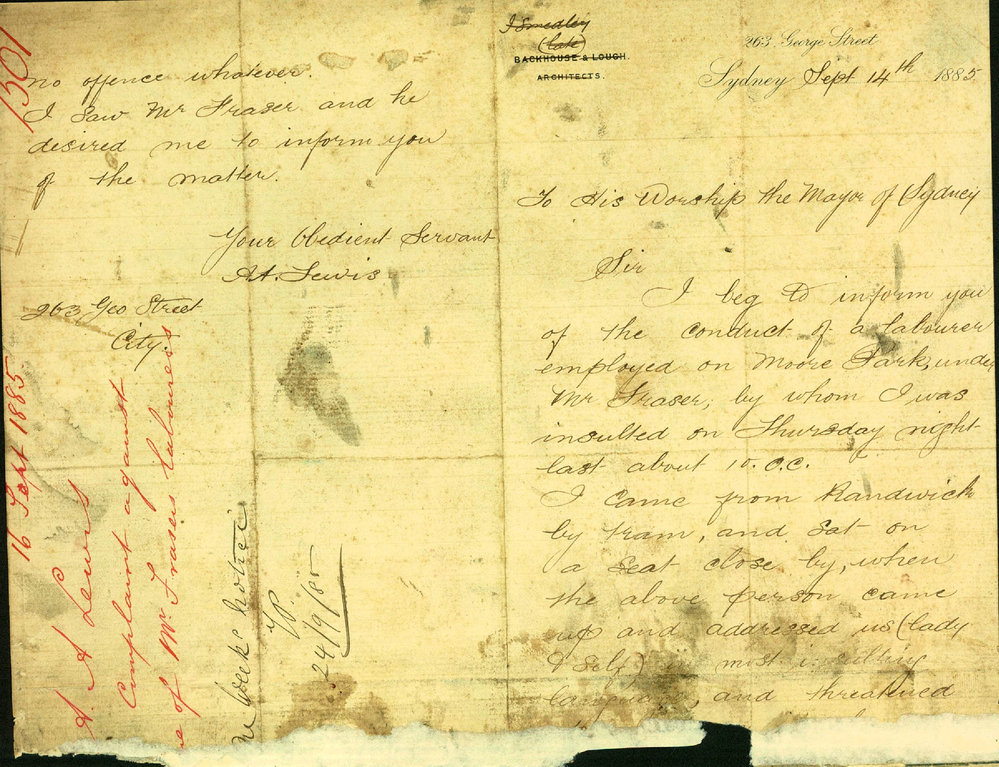 J Smedley
(late)
BACKHOUSE & LOUGH.
ARCHITECTS.
263 George Street
Sydney Sept 14th 1885
To His Worship the Mayor of Sydney
Sir
I beg to inform you
of the conduct of a labourer
employed on Moore Park, under
Mr Fraser, by whom I was
insulted on Thursday night
last about 10.O.C.
I came from Randwick
by tram, and sat on
a seat close by, when
the above person came
up and addressed us (lady
& self) in most insulting
language, and threatened
no offence whatever.
I saw Mr Fraser and he
desired me to inform you
of the matter.
Your Obedient Servant
A A. Lewis
263 Geo Street
City.
1301
16 Sept 1885
A. A Lewis
Complaint against
of Mr Frasers labourers
week notice
24/9/85